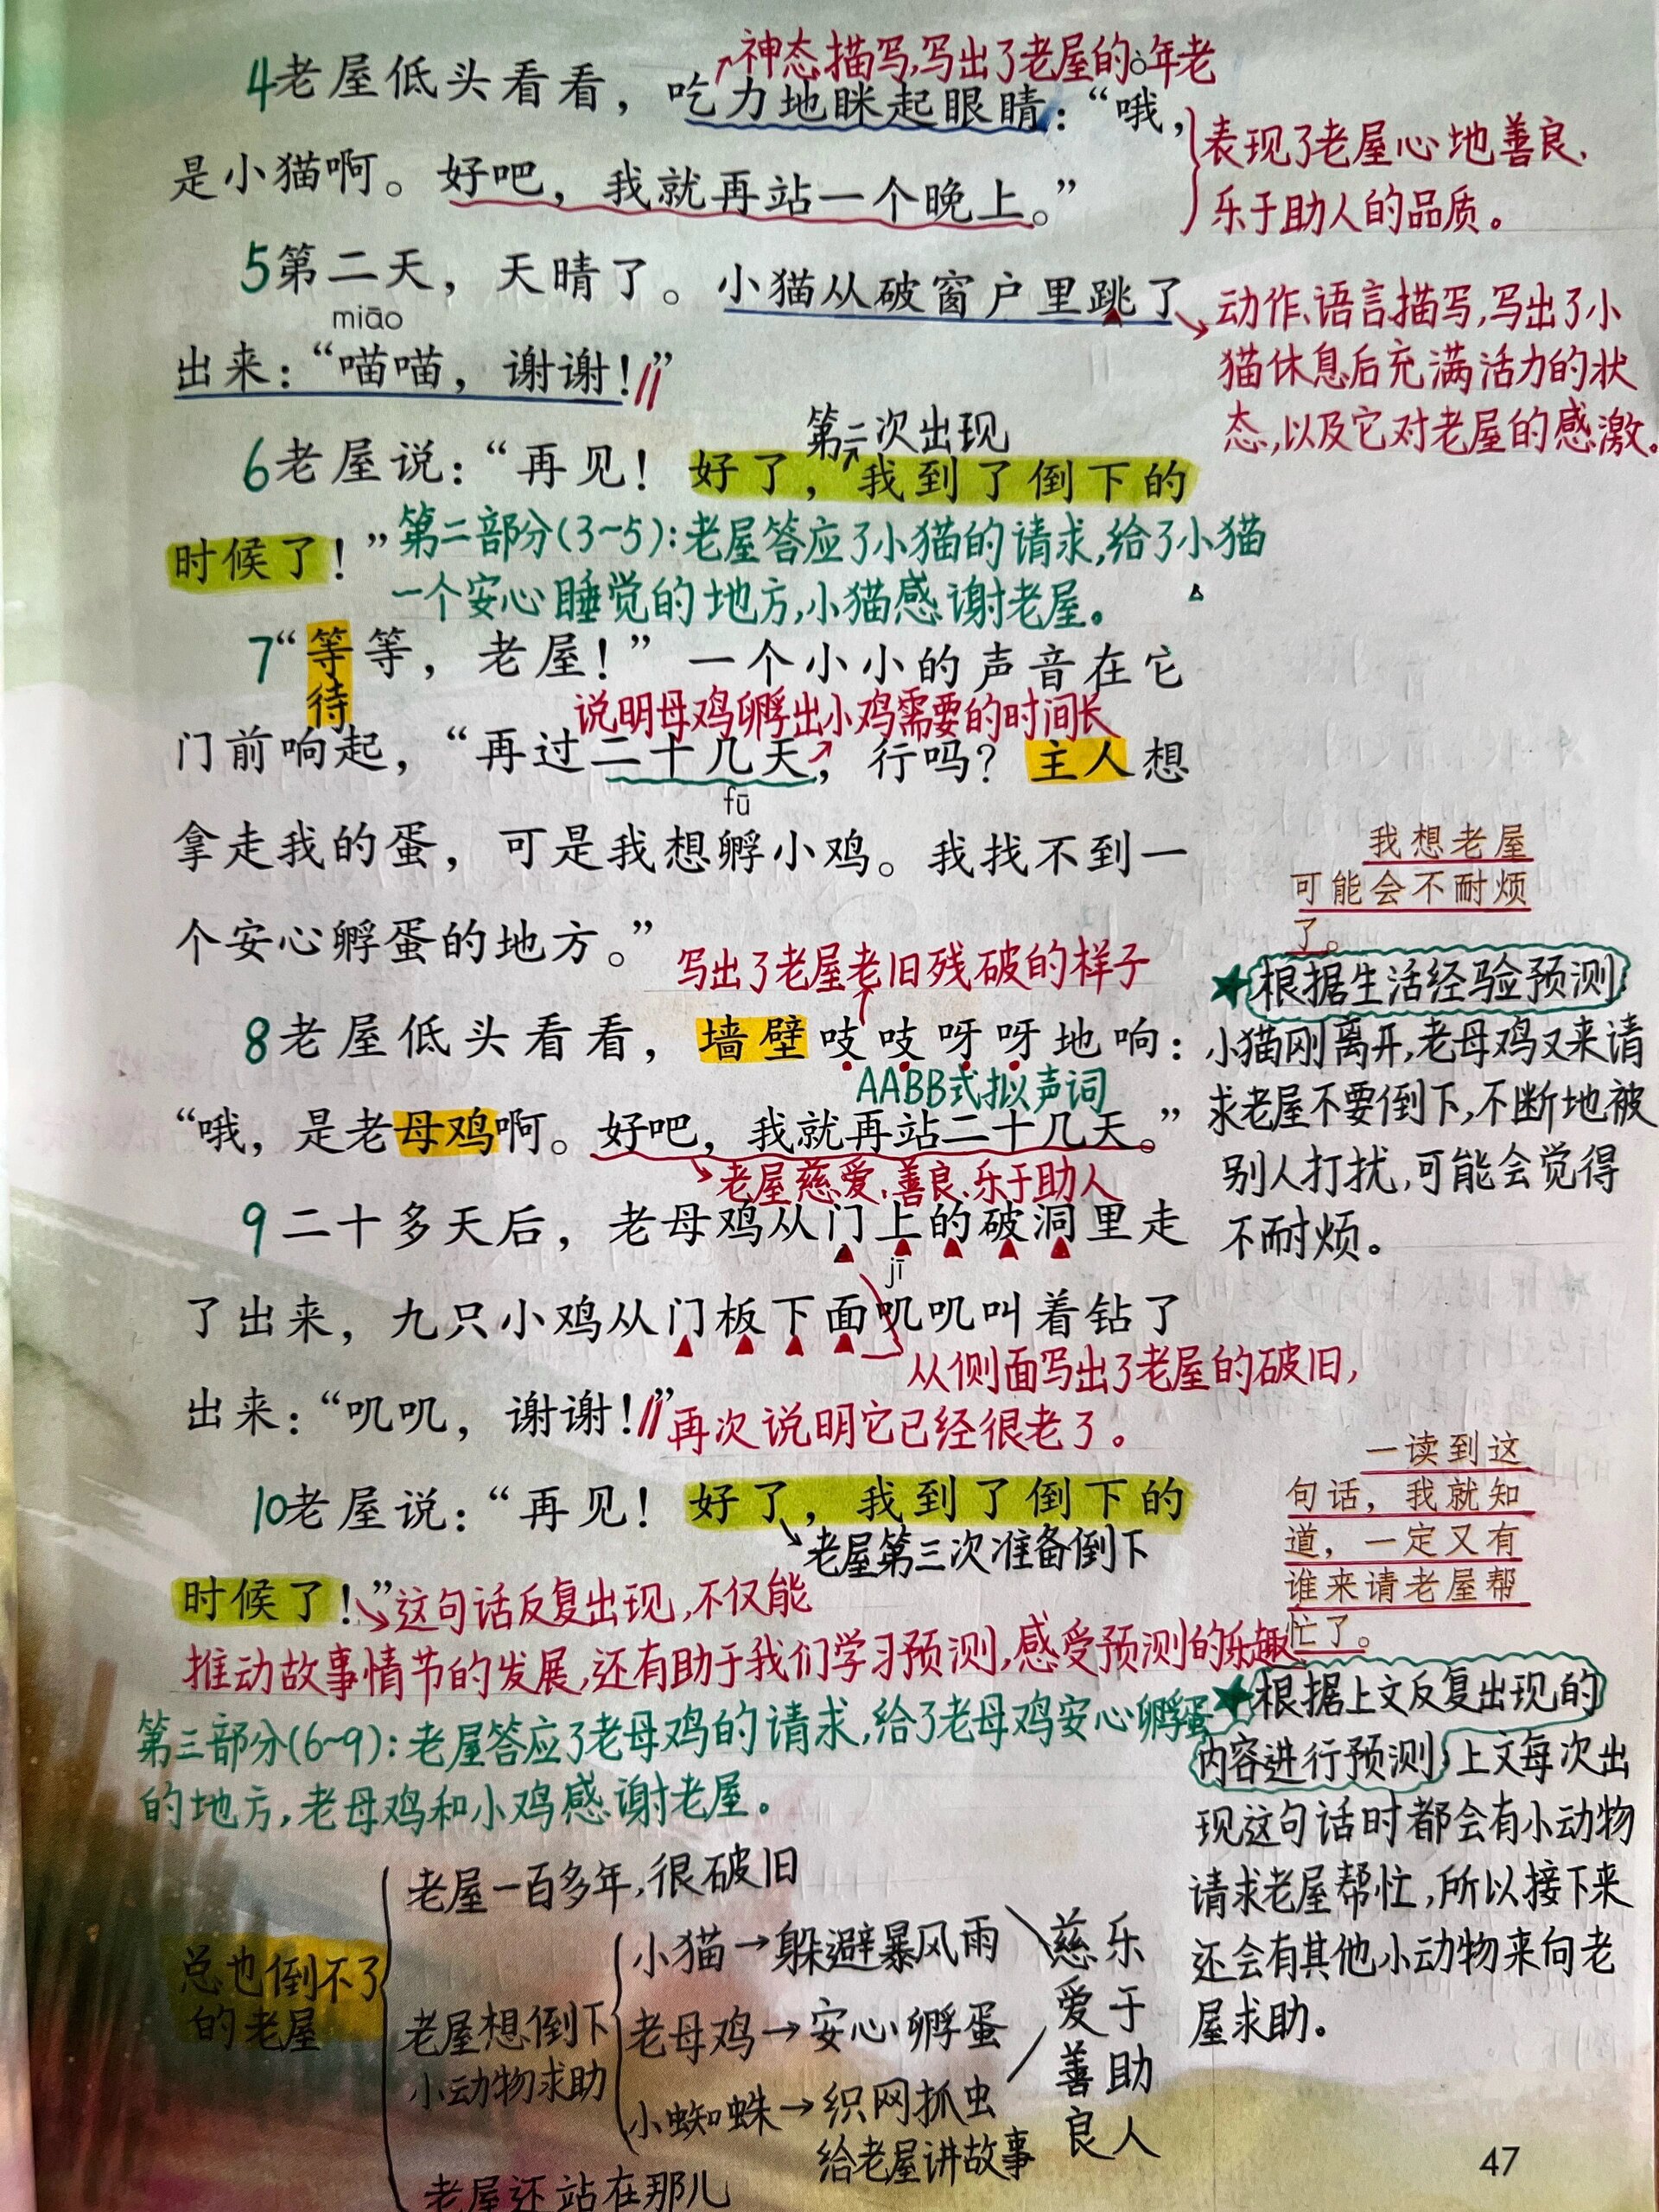 神态描写,写出了老屋的年老
4老屋低头看看，吃力地眯起眼睛：“哦，
表现了老屋心地善良、
是小猫啊。好吧，我就再站一个晚上。”
乐于助人的品质。
5第二天，天晴了。小猫从破窗户里跳了
动作、语言描写,写出了小
miāo
出来：“喵喵，谢谢！”
猫休息后充满活力的状
态,以及它对老屋的感激。
第二次出现
6老屋说：“再见！好了，我到了倒下的
时候了！”
第二部分(3~5):老屋答应了小猫的请求,给了小猫
一个安心睡觉的地方,小猫感谢老屋。
7“等等，老屋！”一个小小的声音在它
待
说明母鸡孵出小鸡需要的时间长
门前响起，“再过二十几天，行吗？主人想
fū
拿走我的蛋，可是我想孵小鸡。我找不到一
个安心孵蛋的地方。”
我想老屋
可能会不耐烦
了。
写出了老屋老旧残破的样子
8老屋低头看看，墙壁吱吱呀呀地响：
AABB式拟声词
“哦，是老母鸡啊。好吧，我就再站二十几天。”
老屋慈爱、善良、乐于助人
根据生活经验预测
小猫刚离开,老母鸡又来请
求老屋不要倒下,不断地被
别人打扰,可能会觉得
不耐烦。
9二十多天后，老母鸡从门上的破洞里走
jī
了出来，九只小鸡从门板下面叽叽叫着钻了
从侧面写出了老屋的破旧,
出来：“叽叽，谢谢！”
再次说明它已经很老了。
10老屋说：“再见！好了，我到了倒下的
老屋第三次准备倒下
时候了！”
这句话反复出现,不仅能
推动故事情节的发展,还有助于我们学习预测,感受预测的乐趣
一读到这
句话，我就知
道，一定又有
谁来请老屋帮
忙了。
第三部分(6~9):老屋答应了老母鸡的请求,给了老母鸡安心孵蛋
的地方,老母鸡和小鸡感谢老屋。
根据上文反复出现的
内容进行预测 上文每次出
现这句话时都会有小动物
请求老屋帮忙,所以接下来
还会有其他小动物来向老
屋求助。
总也倒不了
的老屋
老屋一百多年,很破旧
老屋想倒下
小动物求助
小猫→躲避暴风雨
老母鸡→安心孵蛋
小蜘蛛→织网抓虫
给老屋讲故事
慈爱善良
乐于助人
老屋还站在那儿
47